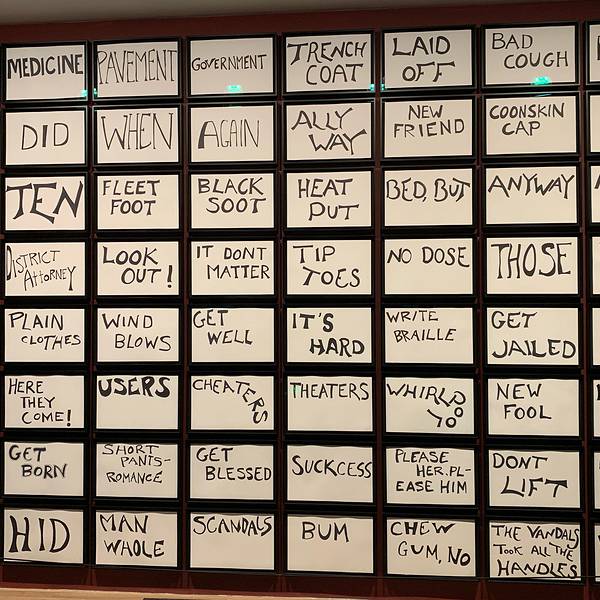 MEDICINE
PAVEMENT
GOVERNMENT
TRENCH
COAT
LAID
OFF
BAD
COUGH
DID
WHEN
AGAIN
ALLY
WAY
NEW
FRIEND
COONSKIN
CAP
TEN
FLEET
FOOT
BLACK
SOOT
HEAT
PUT
BED, BUT
ANYWAY
DISTRICT
ATTORNEY
LOOK
OUT!
IT DONT
MATTER
TIP
TOES
NO DOSE
THOSE
PLAIN
CLOTHES
WIND
BLOWS
GET
WELL
IT'S
HARD
WRITE
BRAILLE
GET
JAILED
HERE
THEY
COME!
USERS
CHEATERS
THEATERS
WHIRLPOOL
NEW
FOOL
GET
BORN
SHORT
PANTS-
ROMANCE
GET
BLESSED
SUCKCESS
PLEASE
HER.PL-
EASE HIM
DONT
LIFT
HID
MAN
WHOLE
SCANDALS
BUM
CHEW
GUM, NO
THE VANDALS
TOOK ALL THE
HANDLES